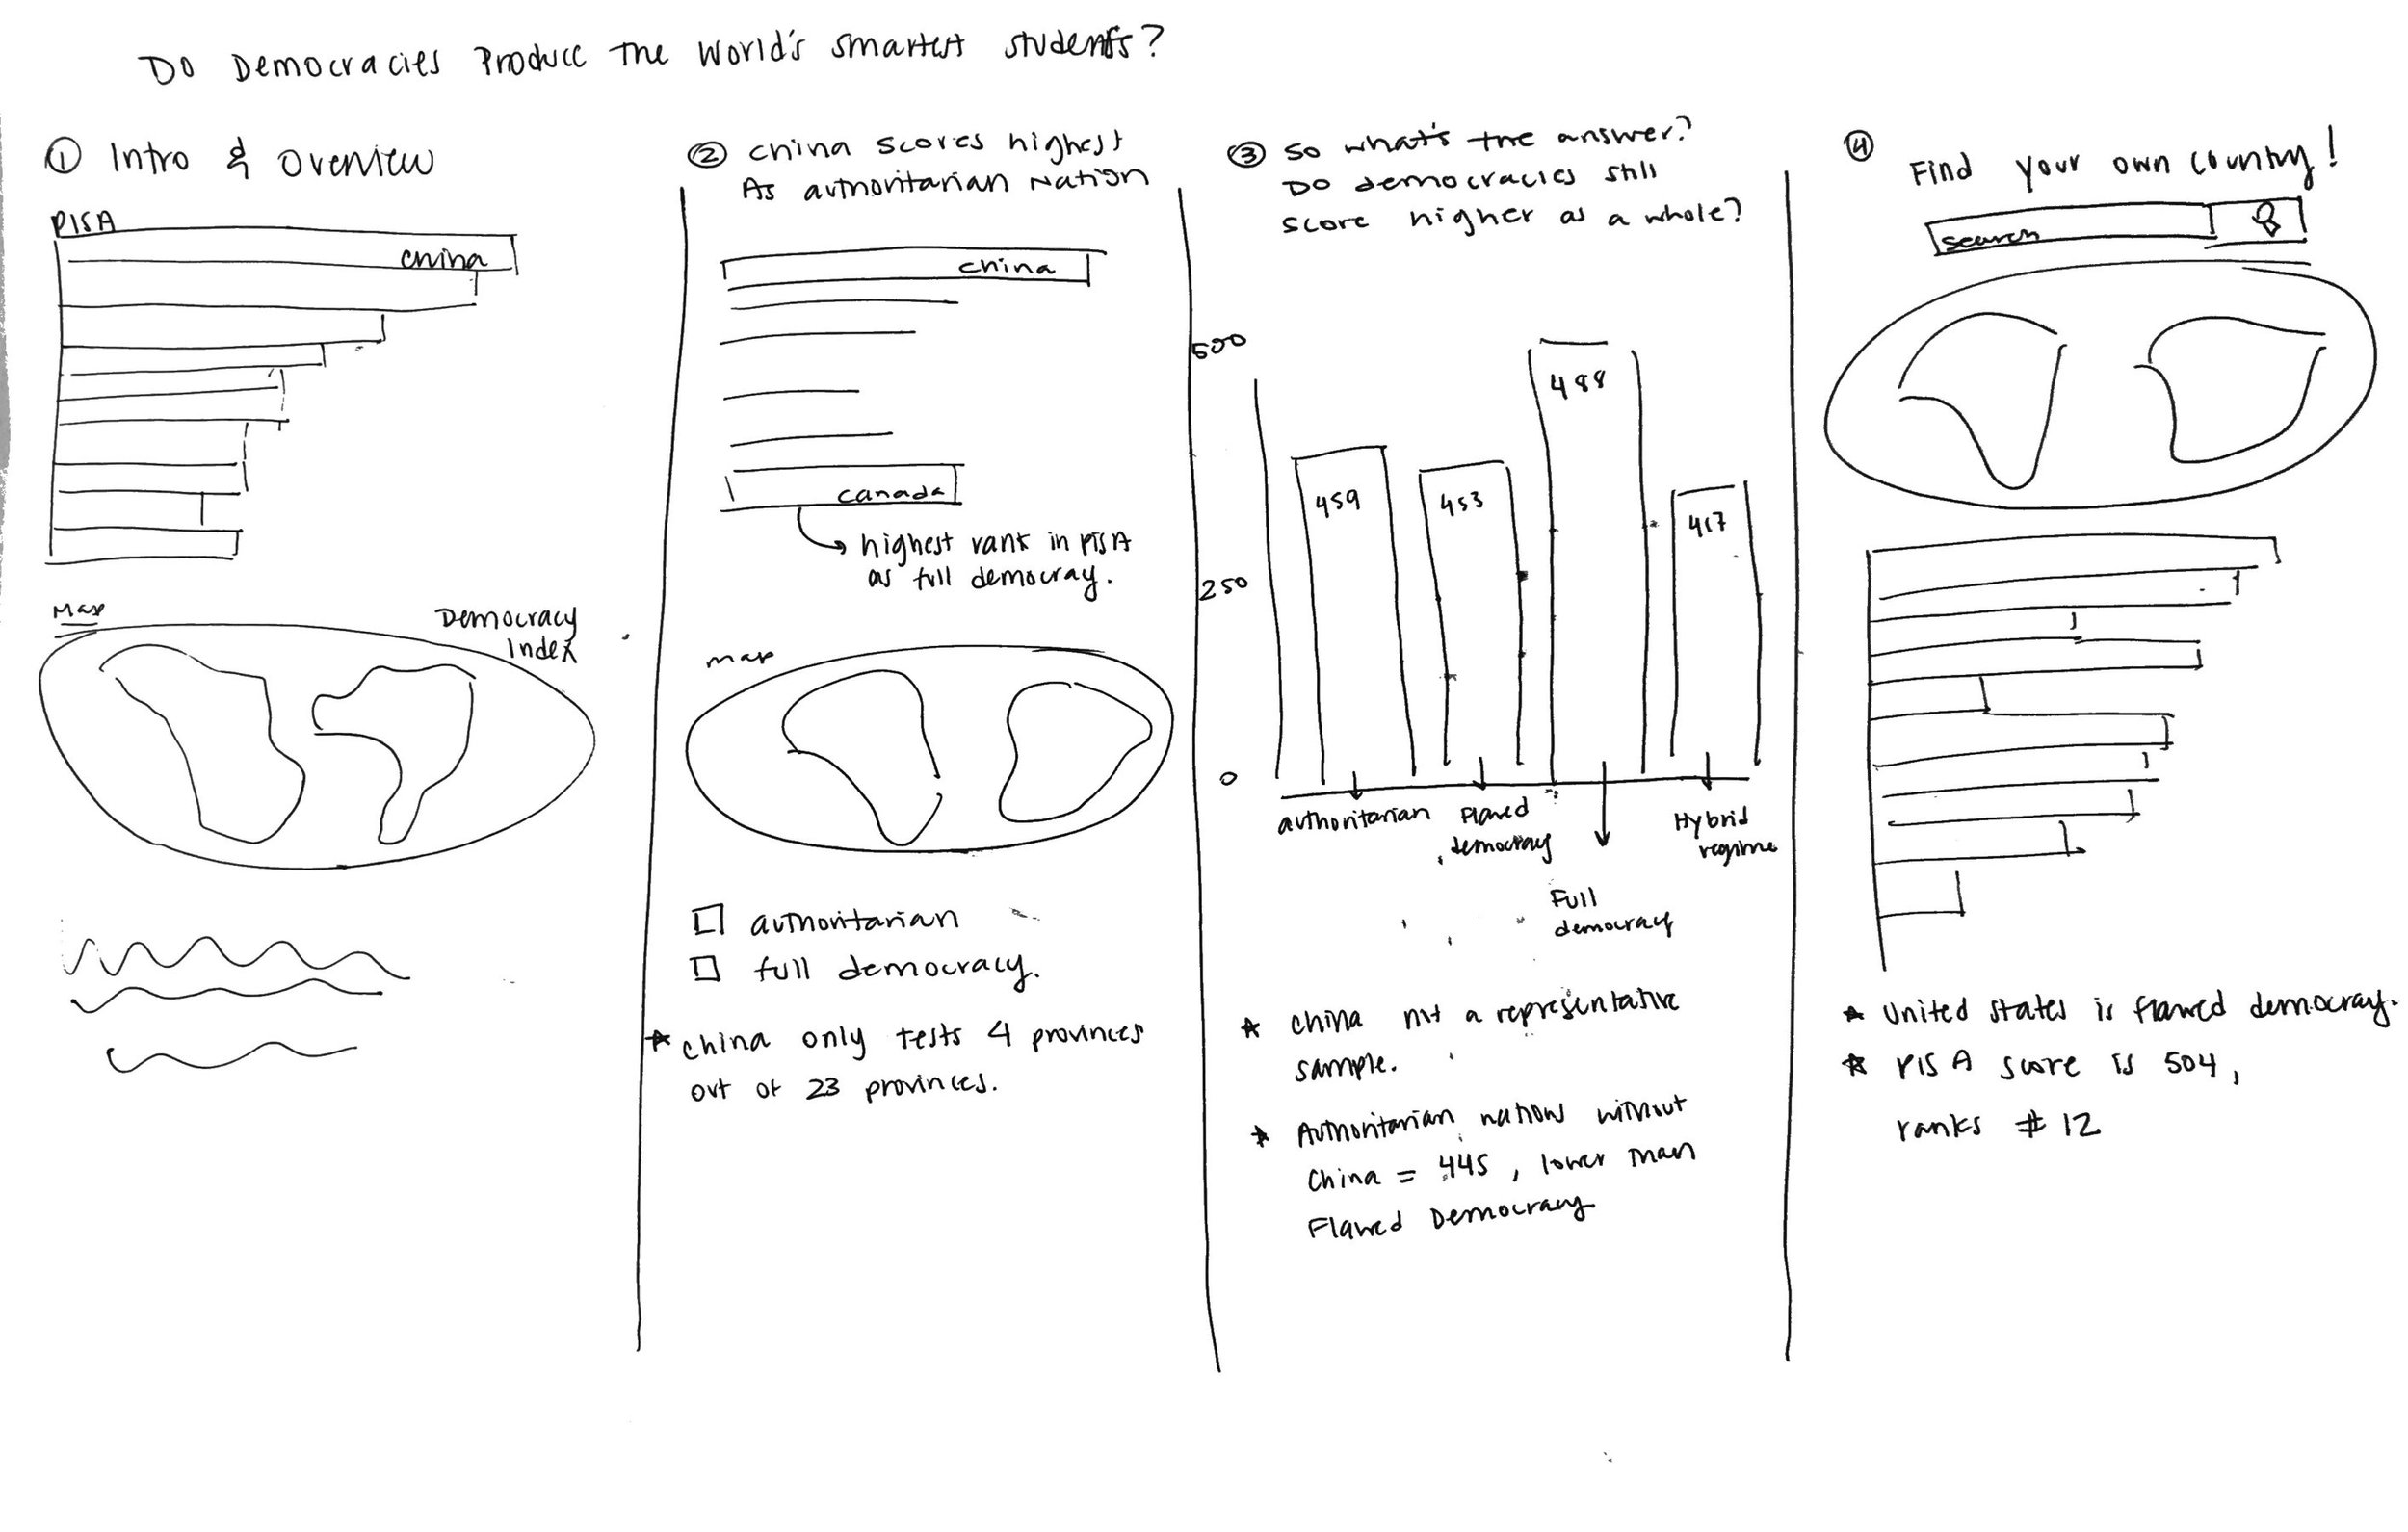 Do Democracies Produce The World's smartest students?
① Intro & Overview
PISA
china
Map
Democracy
Index
② china scores highest
As authoritarian Nation
china
canada
highest rank in PISA
as full democray.
map
authoritarian
full democracy.
* china only tests 4 provinces
out of 23 provinces.
③ So what's the answer?
Do democracies still
score higher as a whole?
500
250
0
459
453
488
417
authoritarian
Flawed
democray
Full
democracy
Hybrid
regime
* china not a representative
sample.
* Authoritarian nations without
China = 445, lower than
Flawed Democracy
④ Find your own country!
search
* United States is flawed democray.
* PISA score is 504,
ranks #12